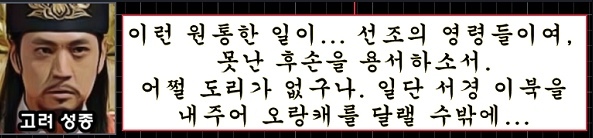 이런 원통한 일이... 선조의 영령들이여,
못난 후손을 용서하소서.
어쩔 도리가 없구나. 일단 서경 이북을
내주어 오랑캐를 달랠 수밖에...
고려 성종